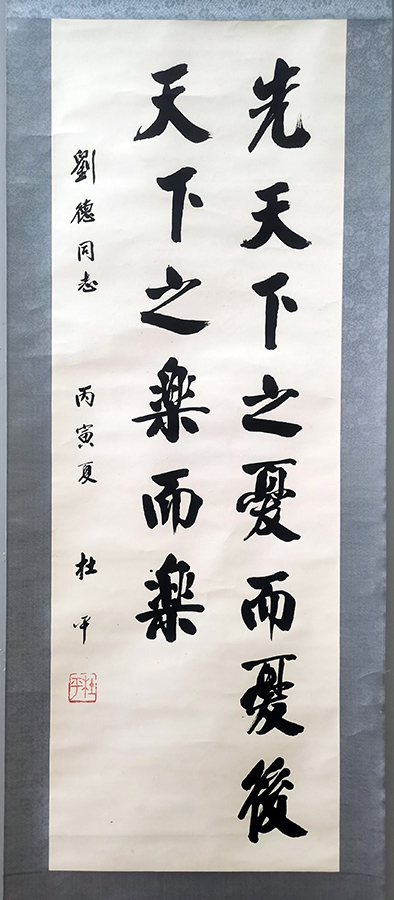 先天下之憂而憂後
天下之楽而楽
劉德同志 丙寅夏 杜平
杜平